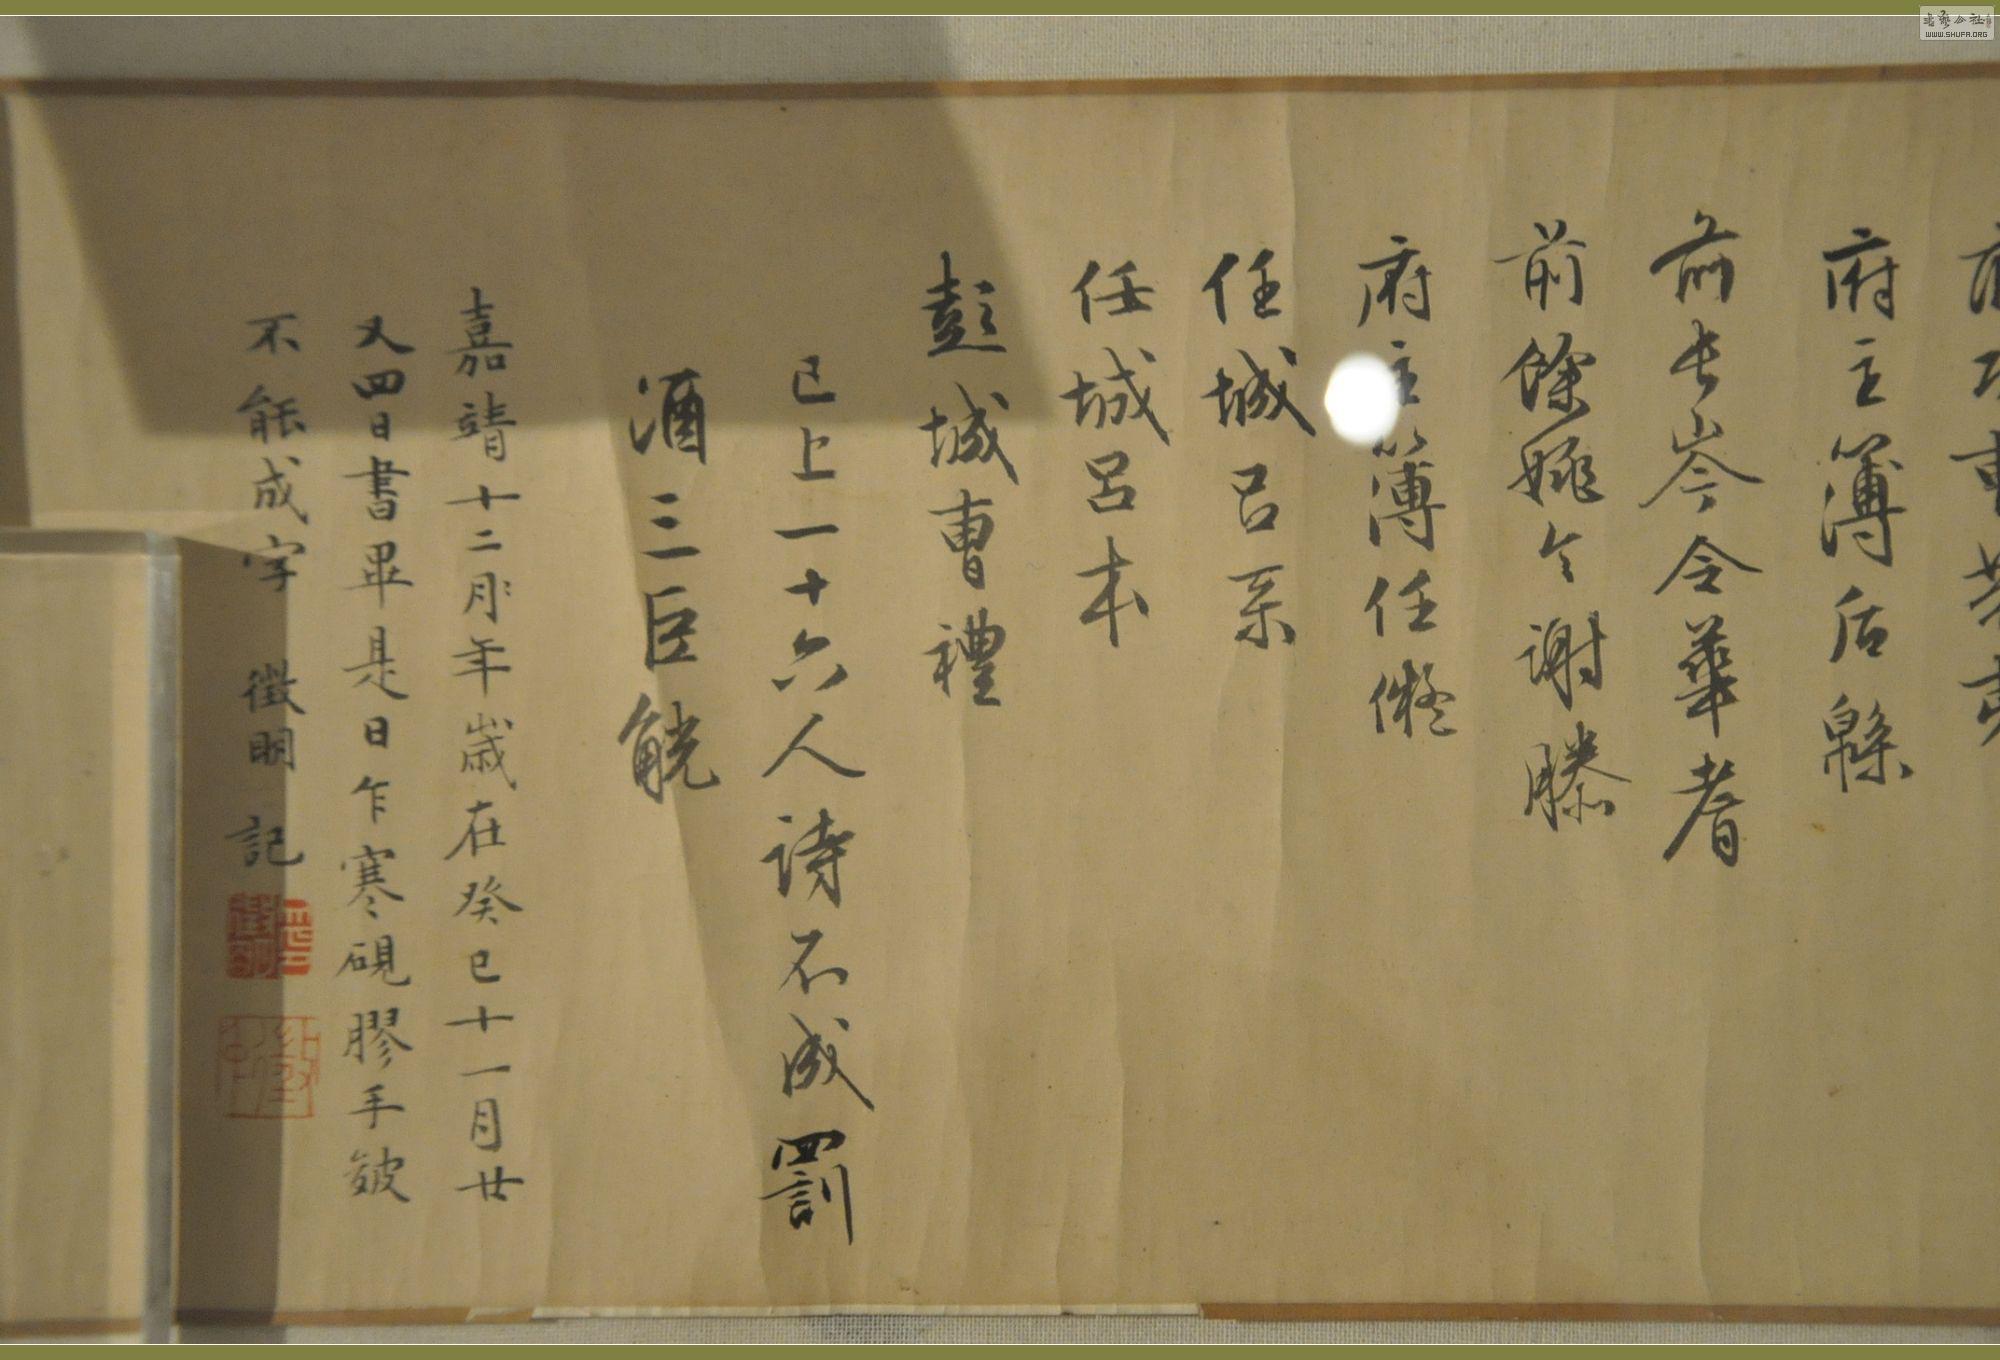 府主簿后緜
前長岑令華耆
前餘姚令謝滕
府主簿任儗
任城呂系
任城呂本
彭城曹禮
已上一十六人詩不成罰
酒三巨觥
嘉靖十二年歲在癸巳十一月廿
又四日書畢是日乍寒硯膠手皴
不能成字 徵明記
書藝公社
WWW.SHUFA.ORG